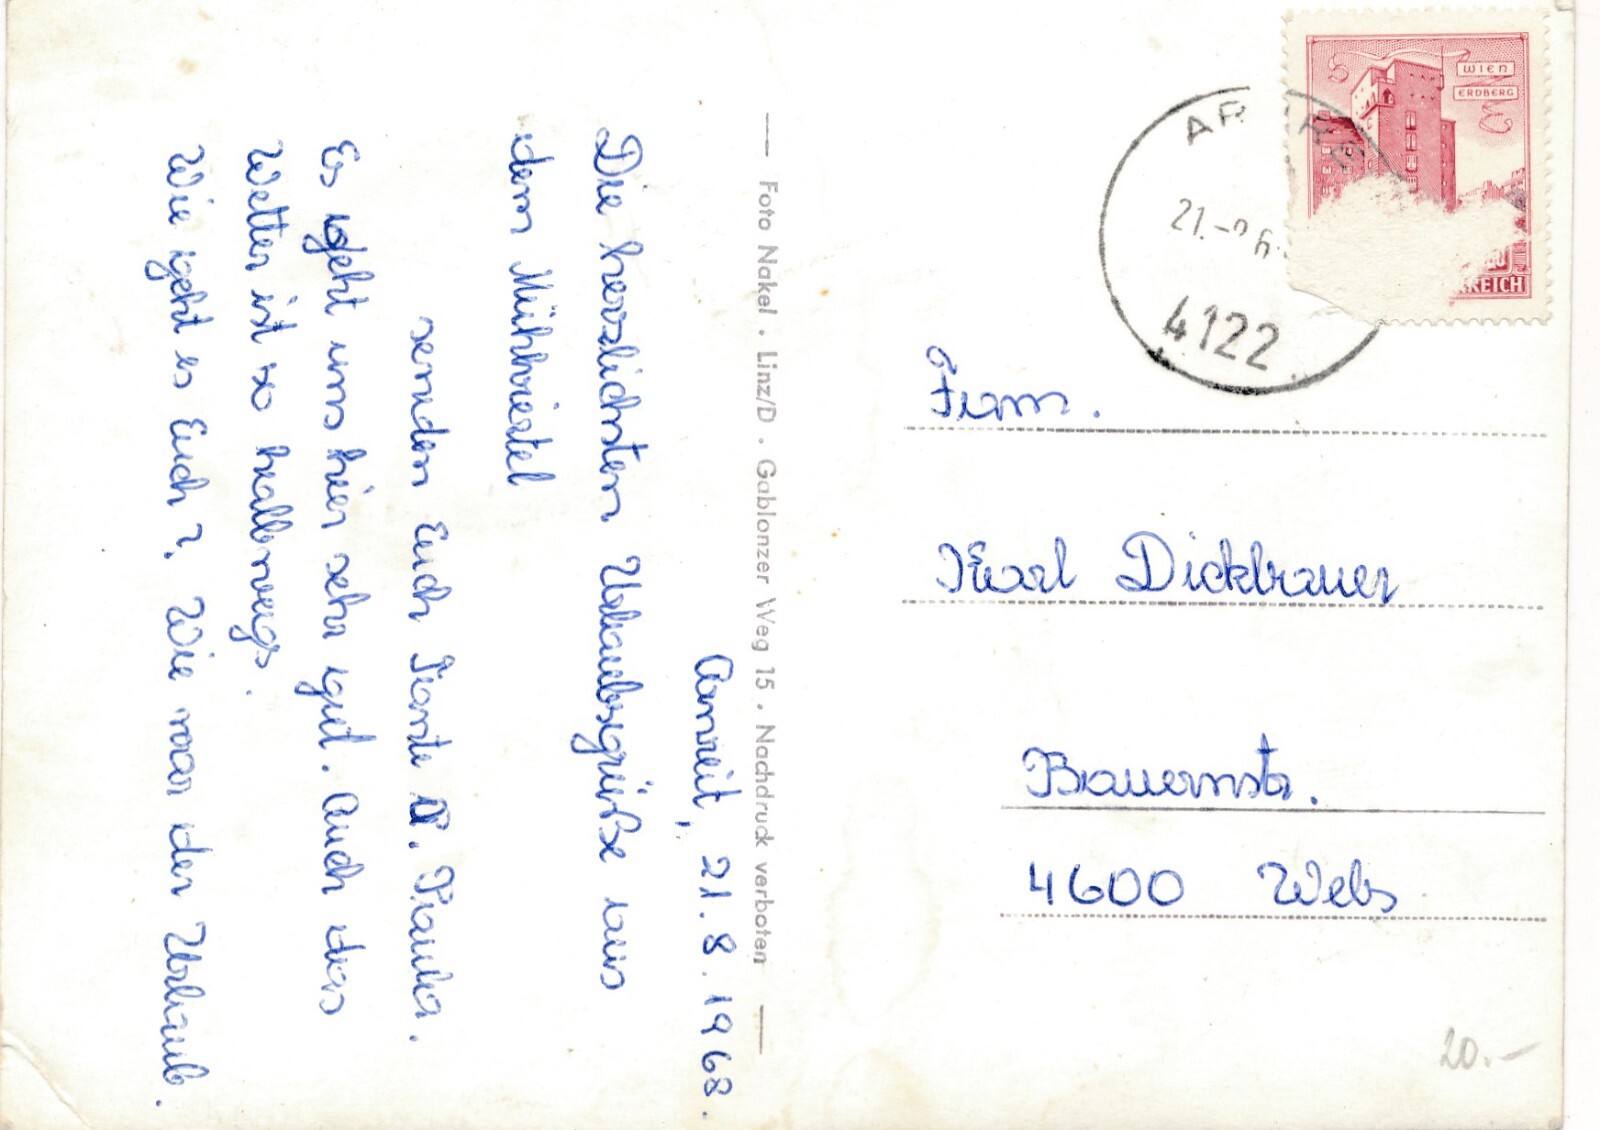 Arnreit, 21.8.1968.
Die herzlichsten Urlaubsgrüße aus
dem Mühlviertel
senden Euch Tante u.
Es geht uns hier sehr gut. Auch das
Wetter ist so halbwegs.
Wie geht es Euch?. Wie war der Urlaub.
Foto Nakel . Linz/D . Gablonzer Weg 15 . Nachdruck verboten
WIEN
ERDBERG
REICH
21.-
4122
Karl Dickbauer
Bauernstr.
4600 Wels
20.-